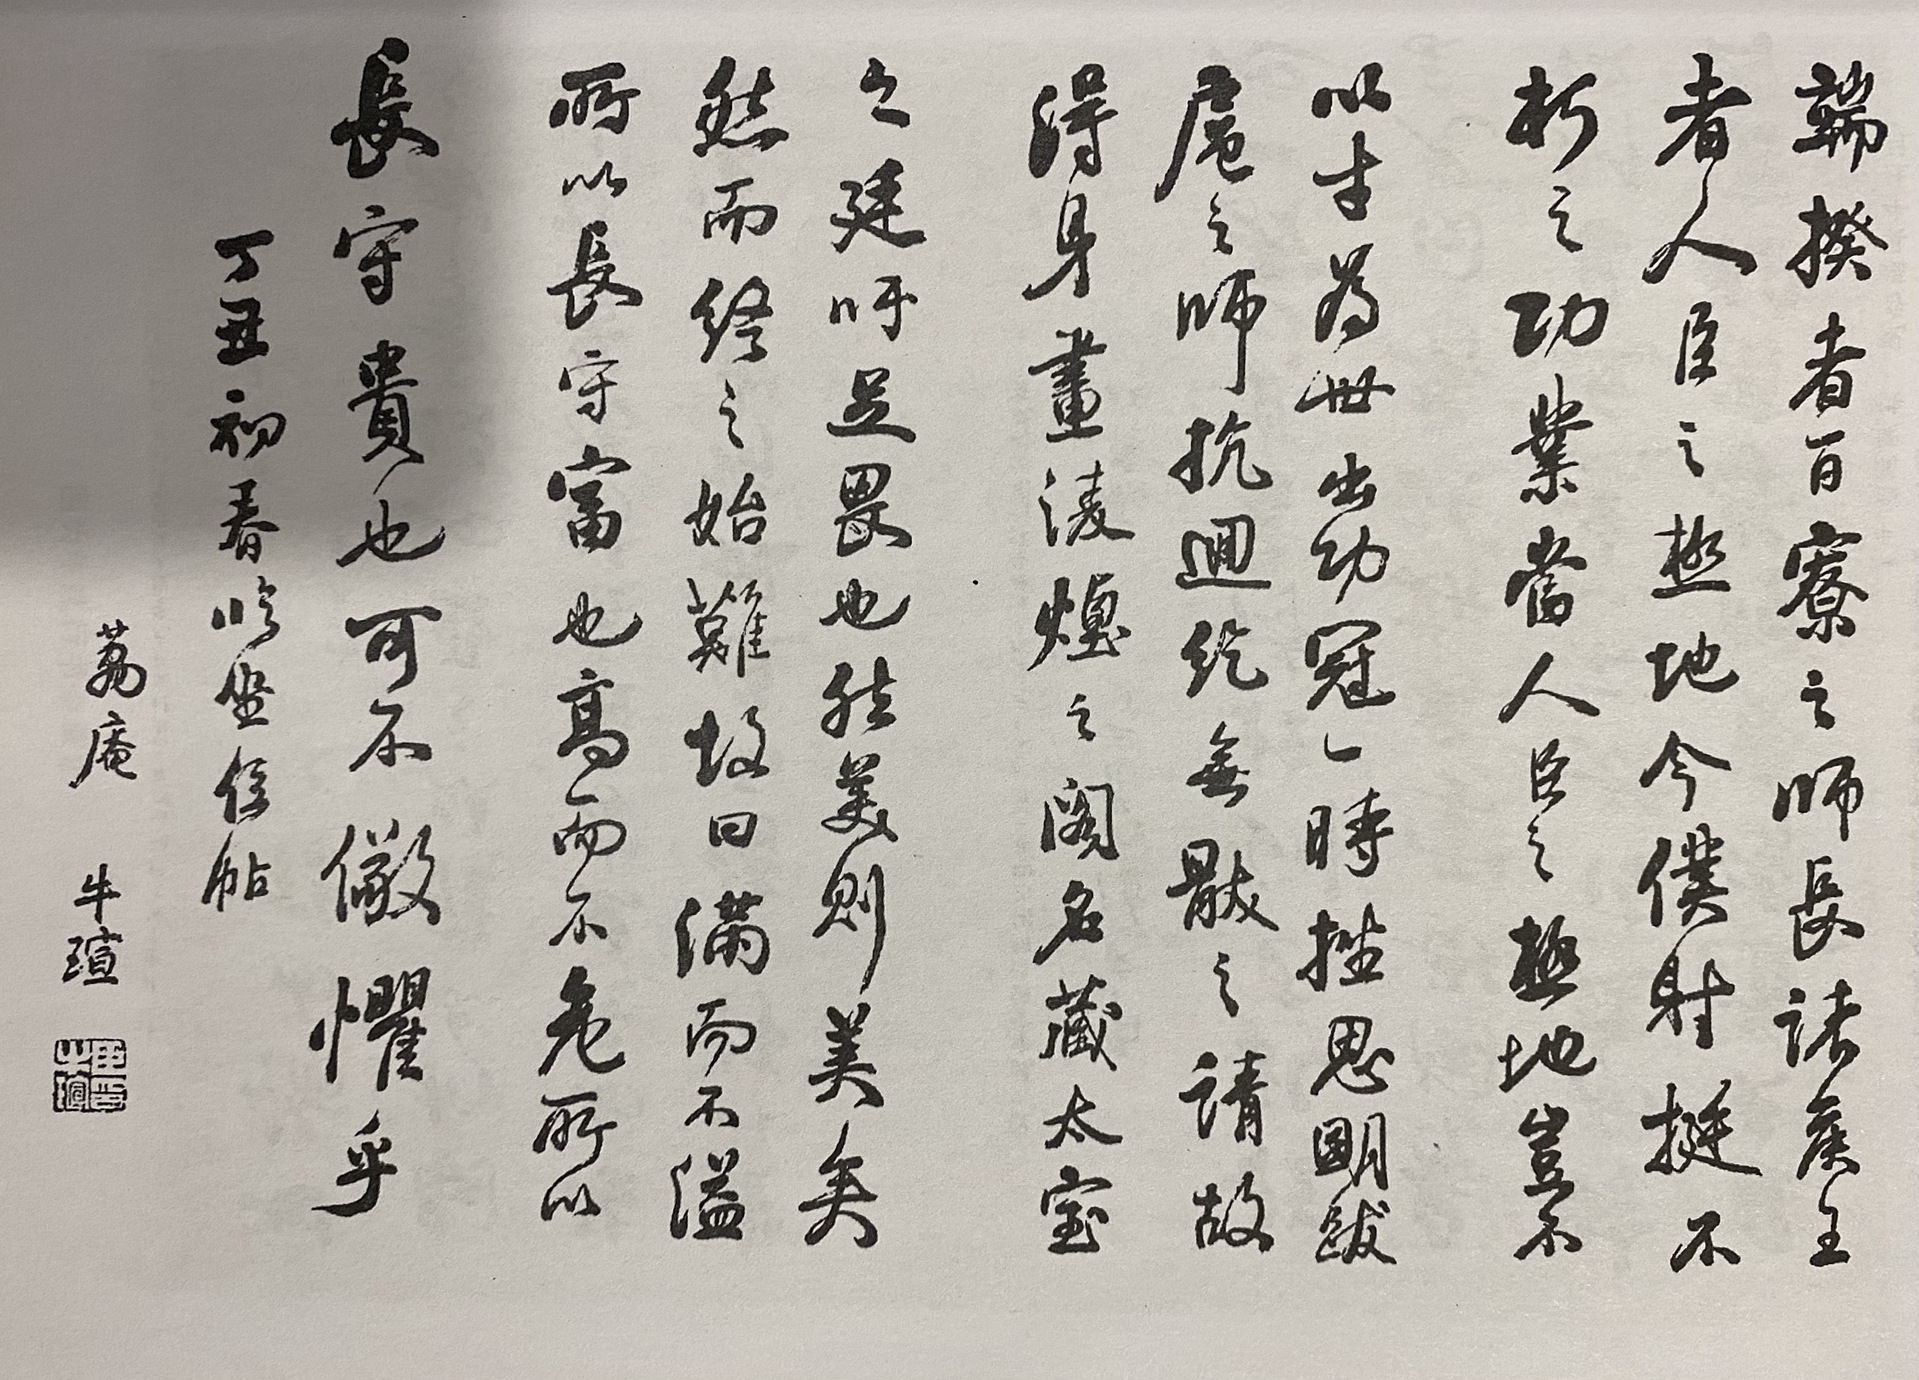 端揆者百寮之師長諸侯王
者人臣之極地今僕射挺不
朽之功業當人臣之極地豈不
以才為世出功冠一時挫思明跋
扈之師抗迴紇無猒之請故
得身畫淩煙之閣名藏太室
之廷吁足畏也然美則美矣
然而終之始難故曰滿而不溢
所以長守富也高而不危所以
長守貴也可不儆懼乎
丁丑初春臨坐位帖
荔庵 牛瑄